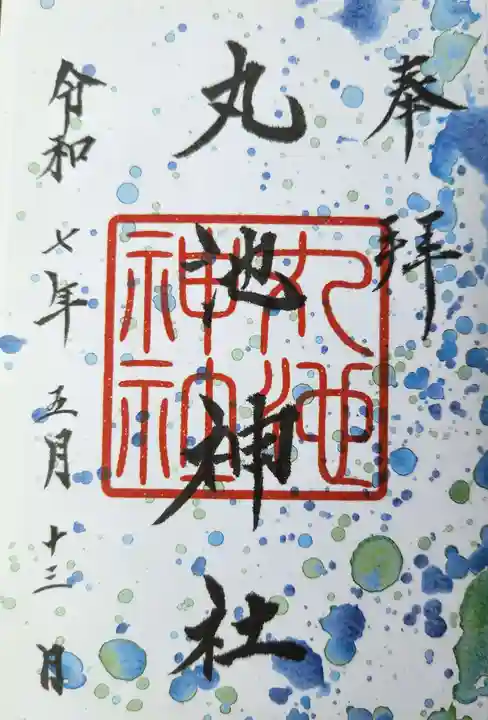 奉拝
丸池神社
丸池
神社
令和七年五月十三日